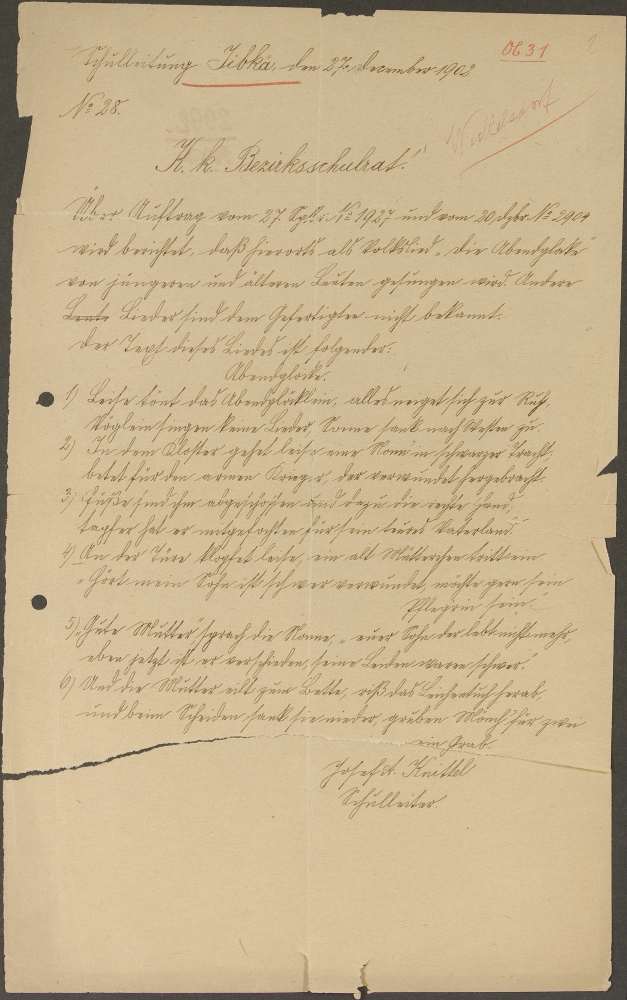 Ob 31
Schulleitung Jibka, den 27. December 1908
No 28.
Wekelsdorf
K. k. Bezirksschulrat!
Über Auftrag vom 27. Spbr. No 1927 und vom 20. dzbr. No 2904
wird berichtet, daß hierorts als Volkslied „Die Abendglocke"
von jüngeren und älteren Leuten gesungen wird. Andere
Leute Lieder sind dem Gefertigten nicht bekannt.
Der Text dieses Liedes ist folgender:
Abendglocke.
1) Leise tönt das Abendglöcklein, alles neiget sich zur Ruh,
Vöglein singen keine Lieder, Sonne sank nach Westen zu.
2) In dem Kloster gehet leise eine Nonne in schwarzer Tracht,
betet für den armen Krieger, der verwundet hergebracht.
3) Füße sind ihm abgeschossen und dazu die rechte Hand,
tapfer hat er mitgefochten für sein teures Vaterland.
4) An der Türe klopfet leise, ein alt Mütterchen tritt ein
„Hört mein Sohn ist schwer verwundet, möchte gern sein
Pflegrin sein."
5) „Gute Mutter" sprach die Nonne, „euer Sohn der lebt nicht mehr,
eben jetzt ist er verschieden, seine Leiden waren schwer."
6) Und die Mutter eilt zum Bette, riß das Leichentuch herab,
und beim Scheiden sank sie nieder, graben Mönch für zwei
ein Grab.
Josef A. Knittel
Schulleiter.